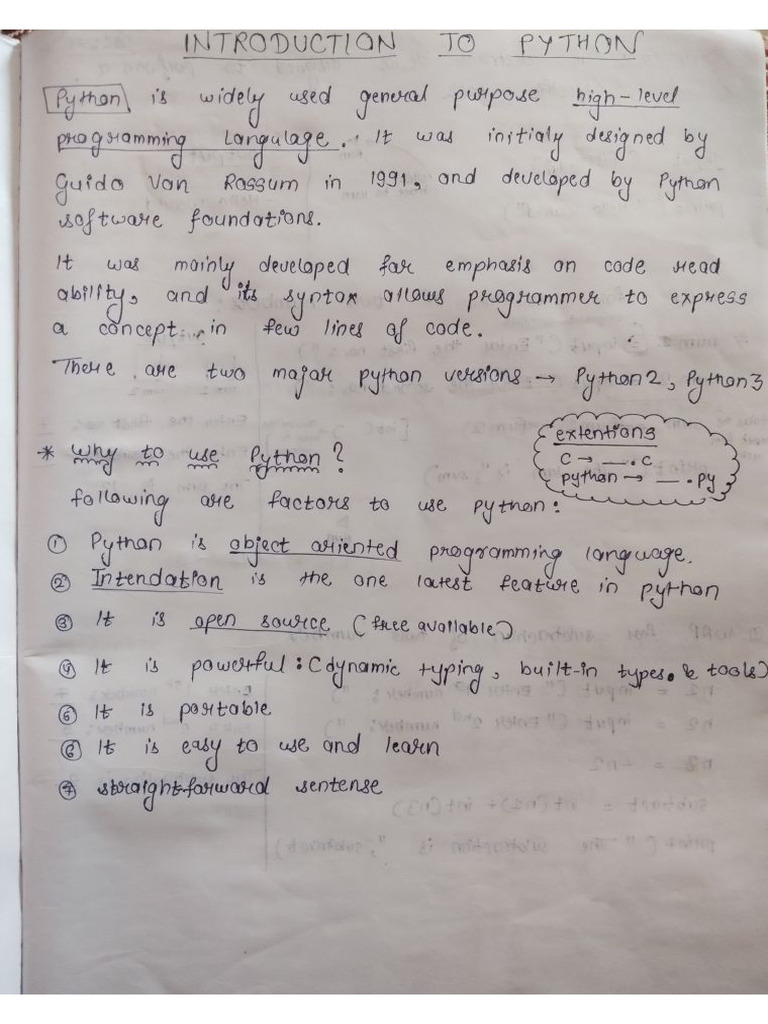 INTRODUCTION TO PYTHON
Python is widely used general purpose high-level
programming langulage. It was initialy designed by
Guido Van Rossum in 1991, and developed by Python
software foundations.
It was mainly developed for emphasis on code read
ability, and its syntax allows programmer to express
a concept in few lines of code.
There are two major python versions → Python2, Python3
* Why to use Python?
extentions
C → __.c
python → __.py
following are factors to use python:
① Python is object oriented programming language.
② Intendation is the one latest feature in python
③ It is open source (free available)
④ It is powerful: (dynamic typing, built-in types. & tools)
⑤ It is portable
⑥ It is easy to use and learn
⑦ straightforward sentense